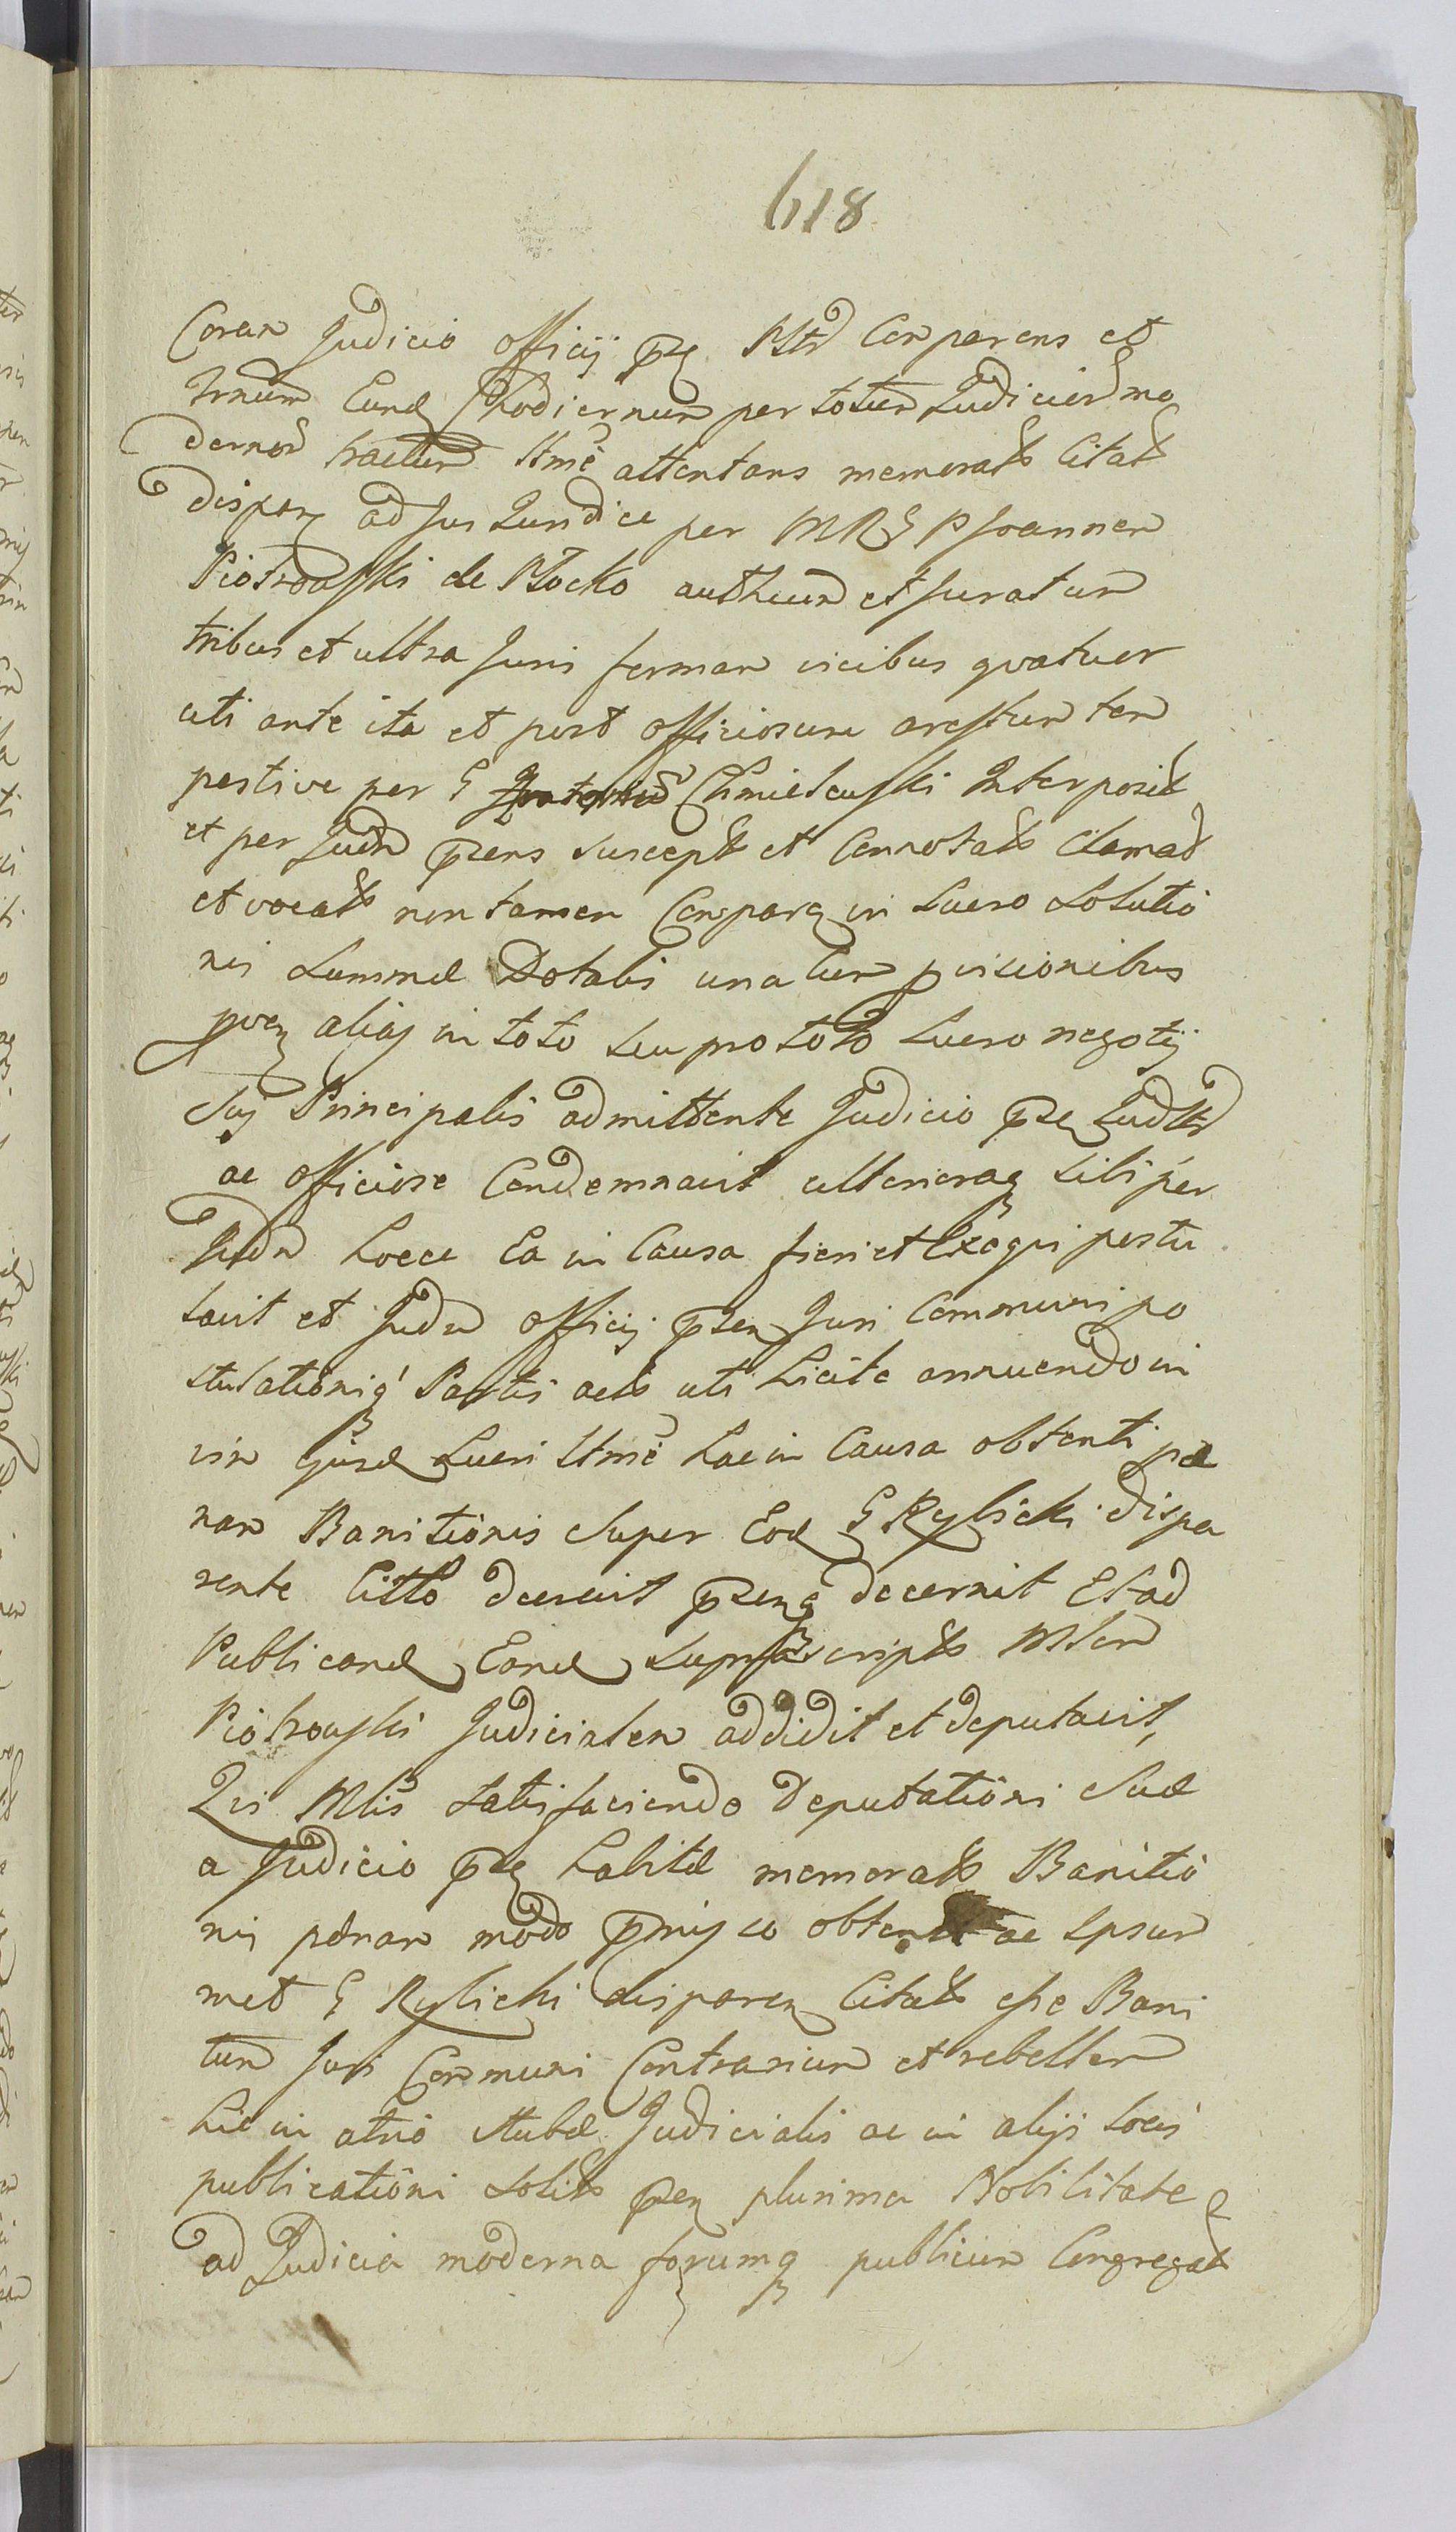 618
Coram Judicio Officij pnte Psltr Comparens et
Trnum Eund Hodiernum per totum Judiciord mo
dernor tractum Ltme attentans memorat Citat
dispar ad Jus Juridice per MRG P Joannem
Piotrowski de Plocko authcum et Juratum
tribus et ultra Juris formam vicibus quatuor
uti ante ita et post officiosum arestum tem
pestive per G Chmielewski Interposit
et per Judm pns suscept et Connotat Clamat
et vocat non tamen Compar in Lucro Solutio
nis Summae Dotalis una cum provisionibus
quoq alias in toto seu pro toto Lucro negotij
Sui Principalis admittente Judicio pnte Judlr
ac officiose Condemnavit ulterioraq sibi per
Judm hocce Ea in Causa fieri et Exequi postu
lavit et Judm Officij pns Juri Communi po
stulationiq Partis act uti Licite annuendo in
vim ejusd Lucri Ltme hac in Causa obtenti pae
nam Banitionis Super Eod G Rylicki dispa
rente Citto decrevit pntq decernit Et ad
Publicand Eand suprascript Mlem
Piotrowski Judicialem addidit et deputavit,
Qui Mlis satisfaciendo deputationi Suae
a Judicio pnte habitae memorat Banitio
nis paenam modo pmisso obtent ac Ipsum
met G Rylicki disparen Citat esse Bani
tum Juri Communi Contrarium et rebellem
hic in atrio Stubae Judicialis ac in alijs locis
publicationi solit pnte plurima Nobilitate
ad Judicia moderna forumq publicum Congregat